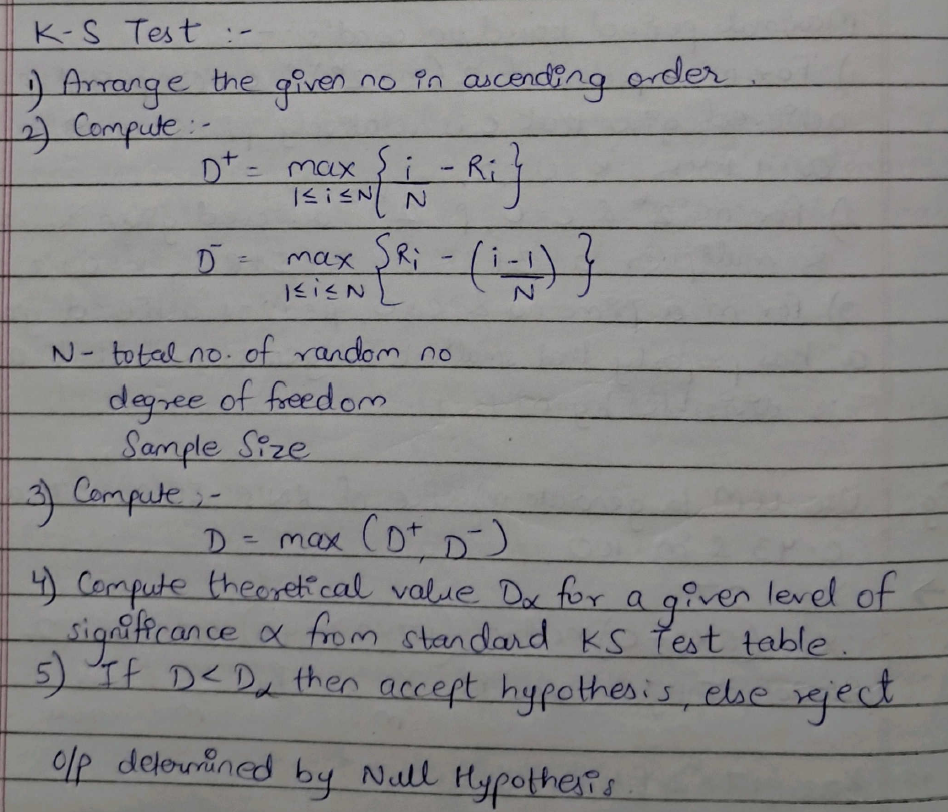 K-S Test :-
1) Arrange the given no in ascending order.
2) Compute :-
D⁺ = max {i/N - Ri}
1≤i≤N
D⁻ = max {Ri - (i-1)/N}
1≤i≤N
N - total no. of random no
degree of freedom
Sample Size
3) Compute ;-
D = max (D⁺, D⁻)
4) Compute theoretical value Dα for a given level of
significance α from standard KS Test table.
5) If D<Dα then accept hypothesis, else reject
o/p determined by Null Hypothesis.